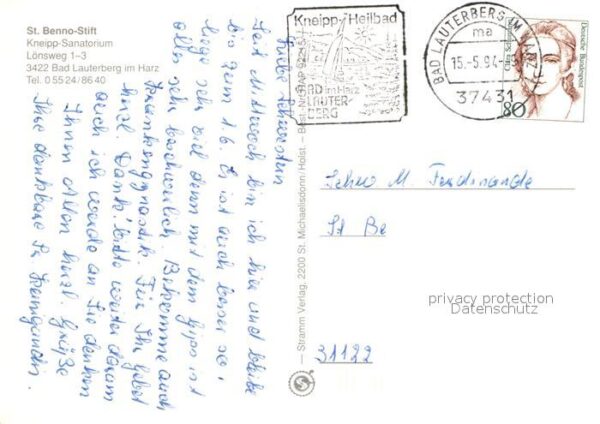 St. Benno-Stift
Kneipp-Sanatorium
Lönsweg 1–3
3422 Bad Lauterberg im Harz
Tel. 0 55 24 / 86 40
Kneipp-Heilbad
BAD im Harz
LAUTER-
BERG
BAD LAUTERBERG IM HARZ
ma
15.-5.94-
37431
Deutsche Bundespost
80
Liebe Schwestern
Seit Mittwoch bin ich hier und bleibe
bis zum 1.6. Es ist auch besser so,
liege sehr viel denn mit dem Gips ist
alles sehr beschwerlich. Bekomme auch
Krankengymnastik. Für Ihr Gebet
herzl. Dank, bitte weiter darum
auch ich werde an Sie denken
Ihnen Allen herzl. Grüße
Ihre dankbare Sr.
— Stramm Verlag, 2200 St. Michaelisdonn/Holst. – Best. Nr.
Schw M Ferdinande
St Be
31122
privacy protection
Datenschutz